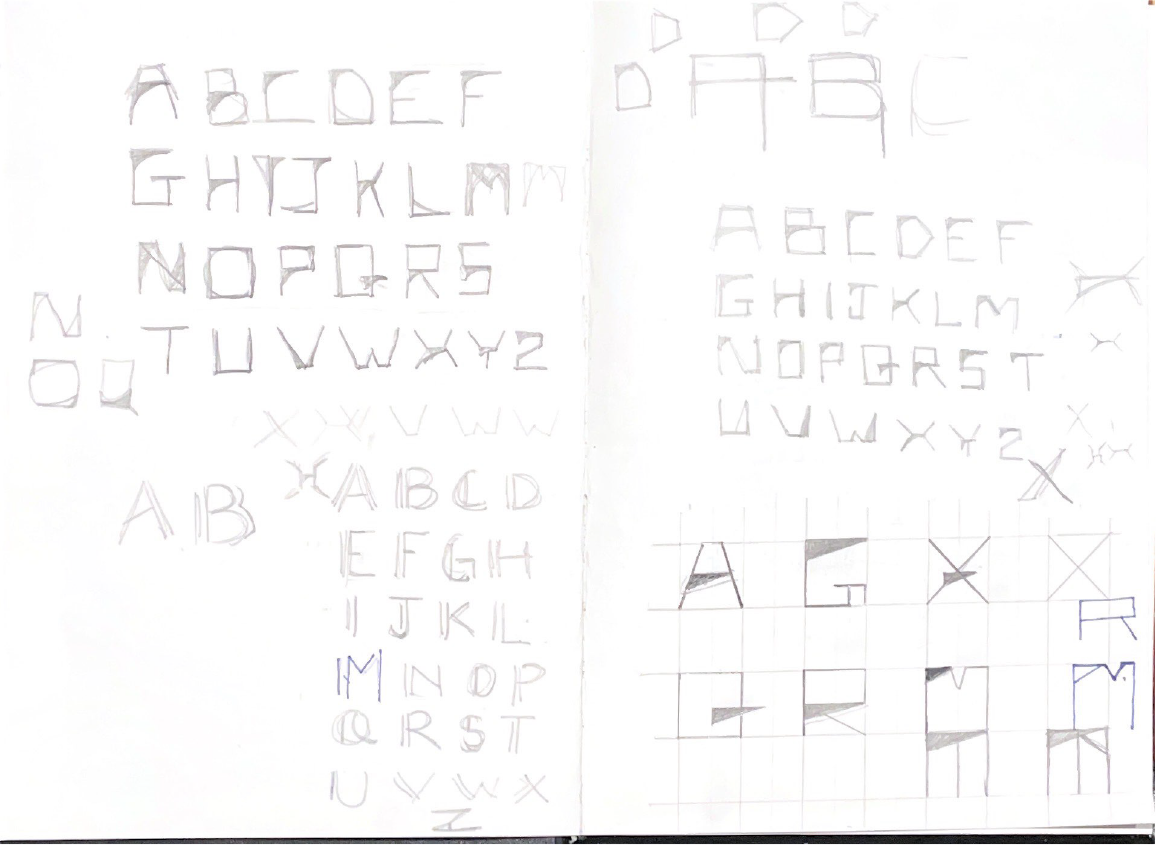 A B C D E F
G H I J K L M M
N O P Q R S
N
T U V W X Y Z
O Q
X X V W W
X A B C D
A B
E F G H
I J K L
M N O P
Q R S T
U V W X
Z
D D D
D A B C
A B C D E F
G H I J K L M
N O P Q R S T
U V W X Y Z
X
A G X X
R
Q R M M
M M